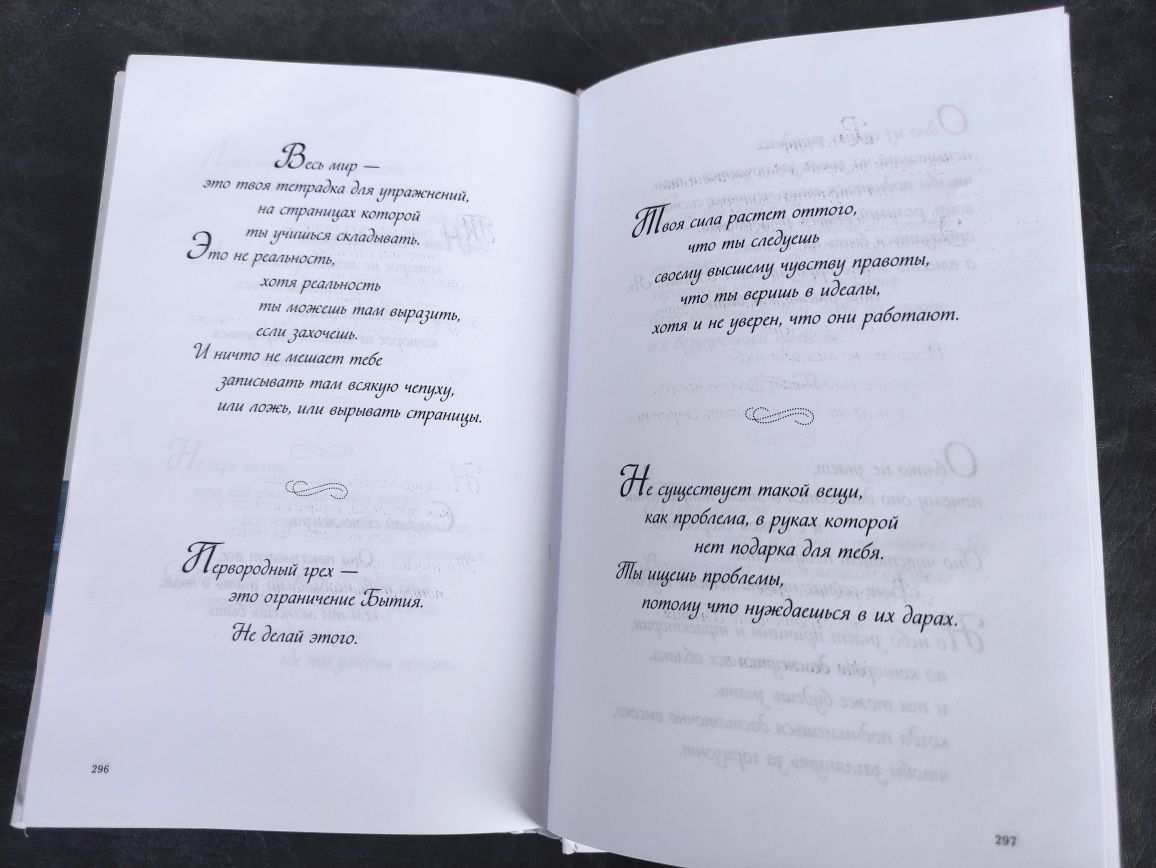 Весь мир —
это твоя тетрадка для упражнений,
на страницах которой
ты учишься складывать.
Это не реальность,
хотя реальность
ты можешь там выразить,
если захочешь.
И ничто не мешает тебе
записывать там всякую чепуху,
или ложь, или вырывать страницы.
Первородный грех —
это ограничение Бытия.
Не делай этого.
296
Твоя сила растет оттого,
что ты следуешь
своему высшему чувству правоты,
что ты веришь в идеалы,
хотя и не уверен, что они работают.
Не существует такой вещи,
как проблема, в руках которой
нет подарка для тебя.
Ты ищешь проблемы,
потому что нуждаешься в их дарах.
297